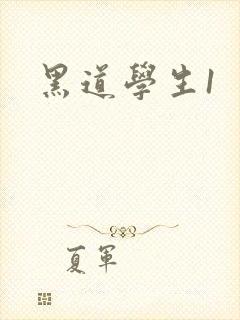 黑道學生1
夏軍